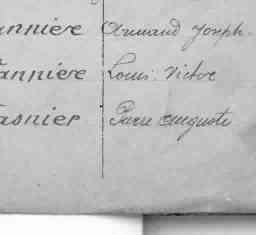 annière Armand Joseph.
annière Louis Victor
asnier Pierre Auguste